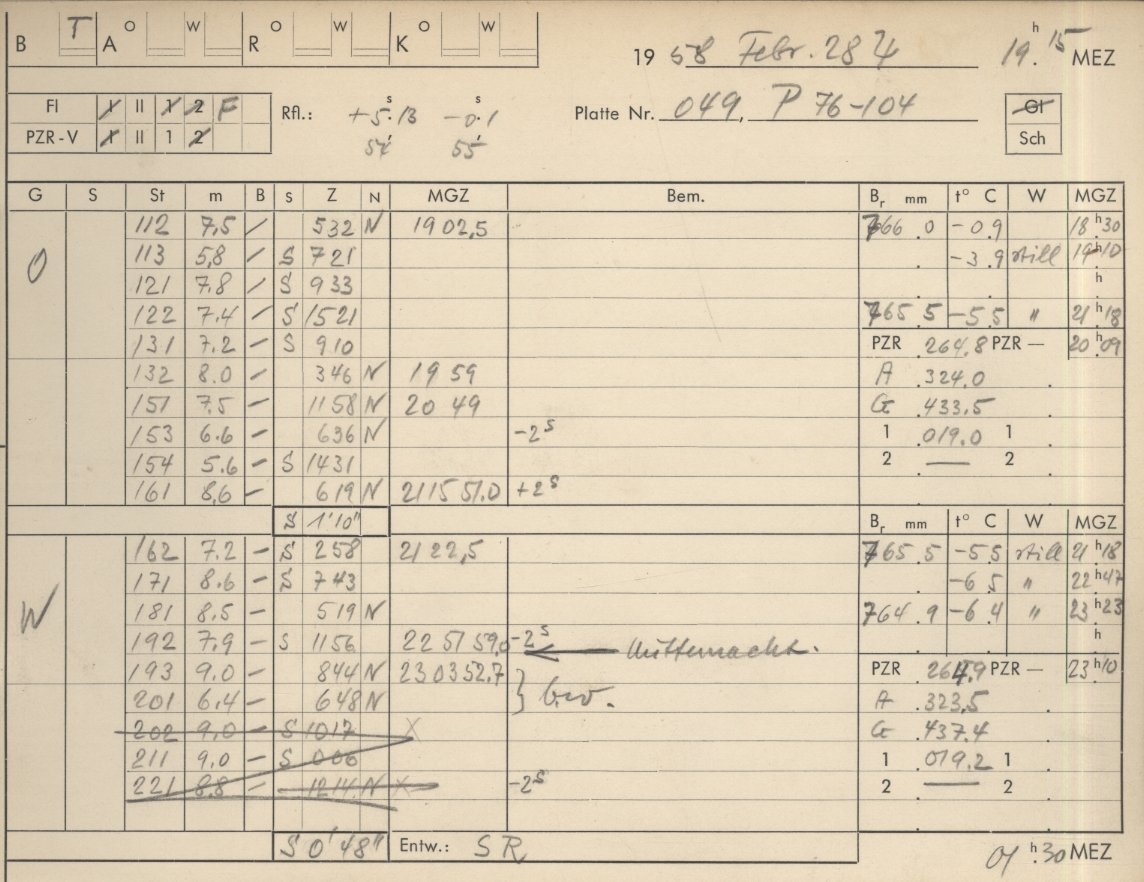 B T A O W R O W K O W
19 58 Febr. 28 19 h 15 MEZ
FI I II 1 2 F
PZR-V I II 1 2
Rfl.: +5 s .13 -0 s .1
54' 55'
Platte Nr. 049, P 76-104
Ol
Sch
G S St m B S Z N MGZ Bem. Br mm t° C W MGZ
112 7,5 / 532 N 19 02,5 766 .0 -0.9 18 h 30
O 113 5,8 / S 721 -3.9 still 19 h 10
121 7.8 / S 933 h
122 7.4 / S 1521 765 5 -5 5 " 21 h 18
131 7.2 - S 910 PZR .264.8 PZR — 20 h 09
132 8.0 - 346 N 19 59 A .324.0
151 7.5 - 1158 N 20 49 G .433.5
153 6.6 - 636 N -2 s 1 .019.0 1
154 5.6 - S 1431 2 — 2
161 8,6 - 619 N 21 15 51.0 +2 s
S 1'10" Br mm t° C W MGZ
162 7.2 - S 258 21 22,5 765 .5 -5 5 still 21 h 18
171 8.6 - S 743 -6 5 " 22 h 47
W 181 8.5 - 519 N 764 .9 -6 4 " 23 h 23
192 7.9 - S 1156 22 51 59,0 -2 s ← Mitternacht. h
193 9.0 - 844 N 23 03 52.7 PZR .264.9 PZR — 23 h 10
201 6.4 - 648 N } bew. A .323.5
202 9.0 - S 1017 X G .437.4
211 9.0 - S 006 1 .019.2 1
221 8.8 - 1214 N X -2 s 2 — 2
S 0'48" Entw.: SR
01 h 30 MEZ